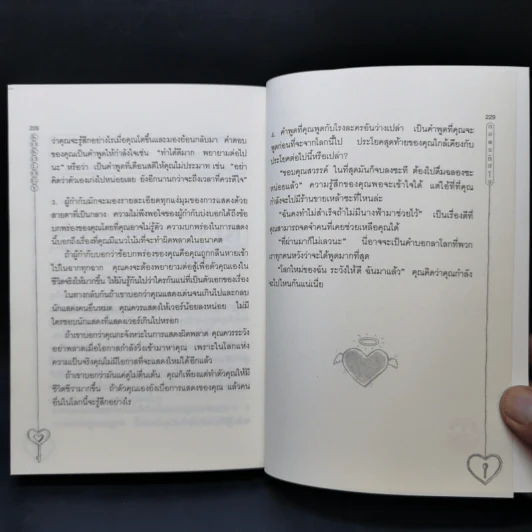 228
ว่าคุณจะรู้สึกอย่างไรเมื่อคุณโตขึ้นและมองย้อนกลับมา คำตอบ
ของคุณเป็นคำพูดให้กำลังใจเช่น "ทำได้ดีมาก พยายามต่อไป
นะ" หรือ เป็นคำพูดที่เตือนสติให้คุณไม่ประมาท เช่น "อย่า
คิดว่าตัวเองเก่งไปหน่อยเลย ยังอีกนานกว่าจะถึงเวลาที่ควรดีใจ"
3. ผู้กำกับมักจะมองรายละเอียดทุกแง่มุมของการแสดงด้วย
สายตาที่เป็นกลาง ความไม่พึงพอใจของผู้กำกับบ่งบอกได้ถึงข้อ
บกพร่องในตัวคุณโดยที่คุณอาจไม่รู้ตัว ความบกพร่องในการแสดง
นี้บอกถึงเรื่องที่คุณมีแนวโน้มที่จะทำผิดพลาดในอนาคต
ถ้าผู้กำกับบอกว่าข้อบกพร่องของคุณคือคุณถูกกลืนหายเข้า
ไปในฉากทุกฉาก คุณคงจะต้องพยายามต่อสู้เพื่อตัวคุณเองใน
ชีวิตจริงให้มากขึ้น ให้มันรู้กันไปว่าใครกันแน่ที่เป็นตัวเอกของเรื่อง
ในทางกลับกันถ้าเขาบอกว่าคุณแสดงเด่นจนเกินไปและกลบ
นักแสดงคนอื่นหมด คุณควรแสดงให้เวอร์น้อยลงหน่อย ไม่มี
ใครชอบนักแสดงที่แสดงเวอร์เกินไปหรอก
ถ้าเขาบอกว่าคุณกะจังหวะในการแสดงผิดพลาด คุณควรระวัง
อย่าพลาดเมื่อโอกาสกำลังวิ่งเข้ามาหาคุณ เพราะในโลกแห่ง
ความเป็นจริงคุณไม่มีโอกาสที่จะแสดงใหม่ได้อีกแล้ว
ถ้าเขาบอกว่ามันแค่ดูไม่ตื่นเต้น คุณก็เพียงแต่ทำตัวคุณให้มี
ชีวิตชีวามากขึ้น ถ้าตัวคุณเองยังเบื่อการแสดงของคุณ แล้วคน
อื่นในโลกนี้จะรู้สึกอย่างไร
229
4. คำพูดที่คุณพูดกับโรงละครอันว่างเปล่า เป็นคำพูดที่คุณจะ
พูดก่อนที่จะจากโลกนี้ไป ประโยคสุดท้ายของคุณใกล้เคียงกับ
ประโยคต่อไปนี้หรือเปล่า?
"ขอบคุณสวรรค์ ในที่สุดมันก็จบลงซะที ต้องไปดื่มฉลองซะ
หน่อยแล้ว" ความรู้สึกของคุณพอจะเข้าใจได้ แต่ไอ้ที่ที่คุณ
กำลังจะไปมีร้านขายเหล้าซะที่ไหนล่ะ
"ฉันคงทำไม่สำเร็จถ้าไม่มีนางฟ้ามาช่วยไว้" เป็นเรื่องดีที่
คุณสามารถจดจำคนที่เคยช่วยเหลือคุณได้
"ที่ผ่านมาก็ไม่เลวนะ" นี่อาจจะเป็นคำบอกลาโลกที่พวก
เราทุกคนหวังว่าจะได้พูดมากที่สุด
"โลกใหม่ของฉัน ระวังให้ดี ฉันมาแล้ว" คุณคิดว่าคุณกำลัง
จะไปไหนกันแน่เนี่ย